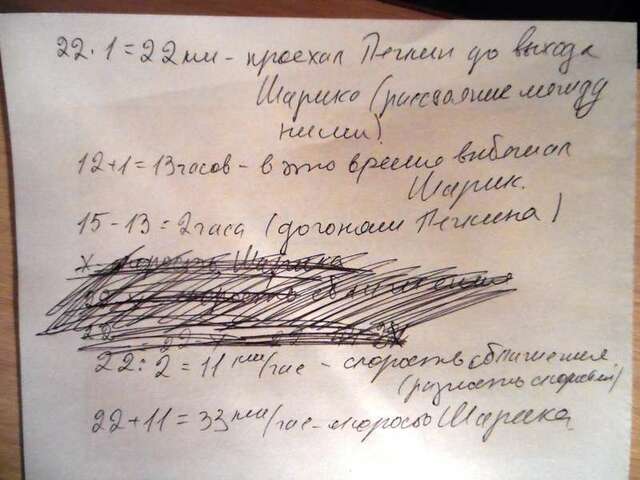 22 · 1 = 22 км - проехал Печкин до выхода
Шарика (расстояние между
ними)
12 + 1 = 13 часов - в это время выбежал
Шарик.
15 - 13 = 2 часа (догонял Печкина)
22 : 2 = 11 км/час - скорость сближения
(разность скоростей)
22 + 11 = 33 км/час - скорость Шарика